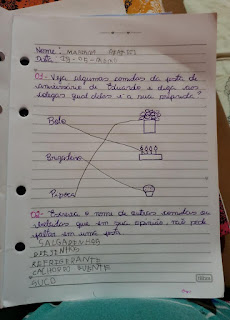 Nome: MARIANA
Data: 29-05-
Q1- Veja algumas comidas da festa de
aniversário de Eduardo e diga nos
delas qual delas é a sua preferida?
Bolo
Brigadeiro
Pipoca
Q2- Escreva o nome de outras comidas ou
bebidas que em sua opinião não pode
faltar em uma festa
SALGADINHOS
DOCINHOS
REFRIGERANTE
CACHORRO QUENTE
SUCO